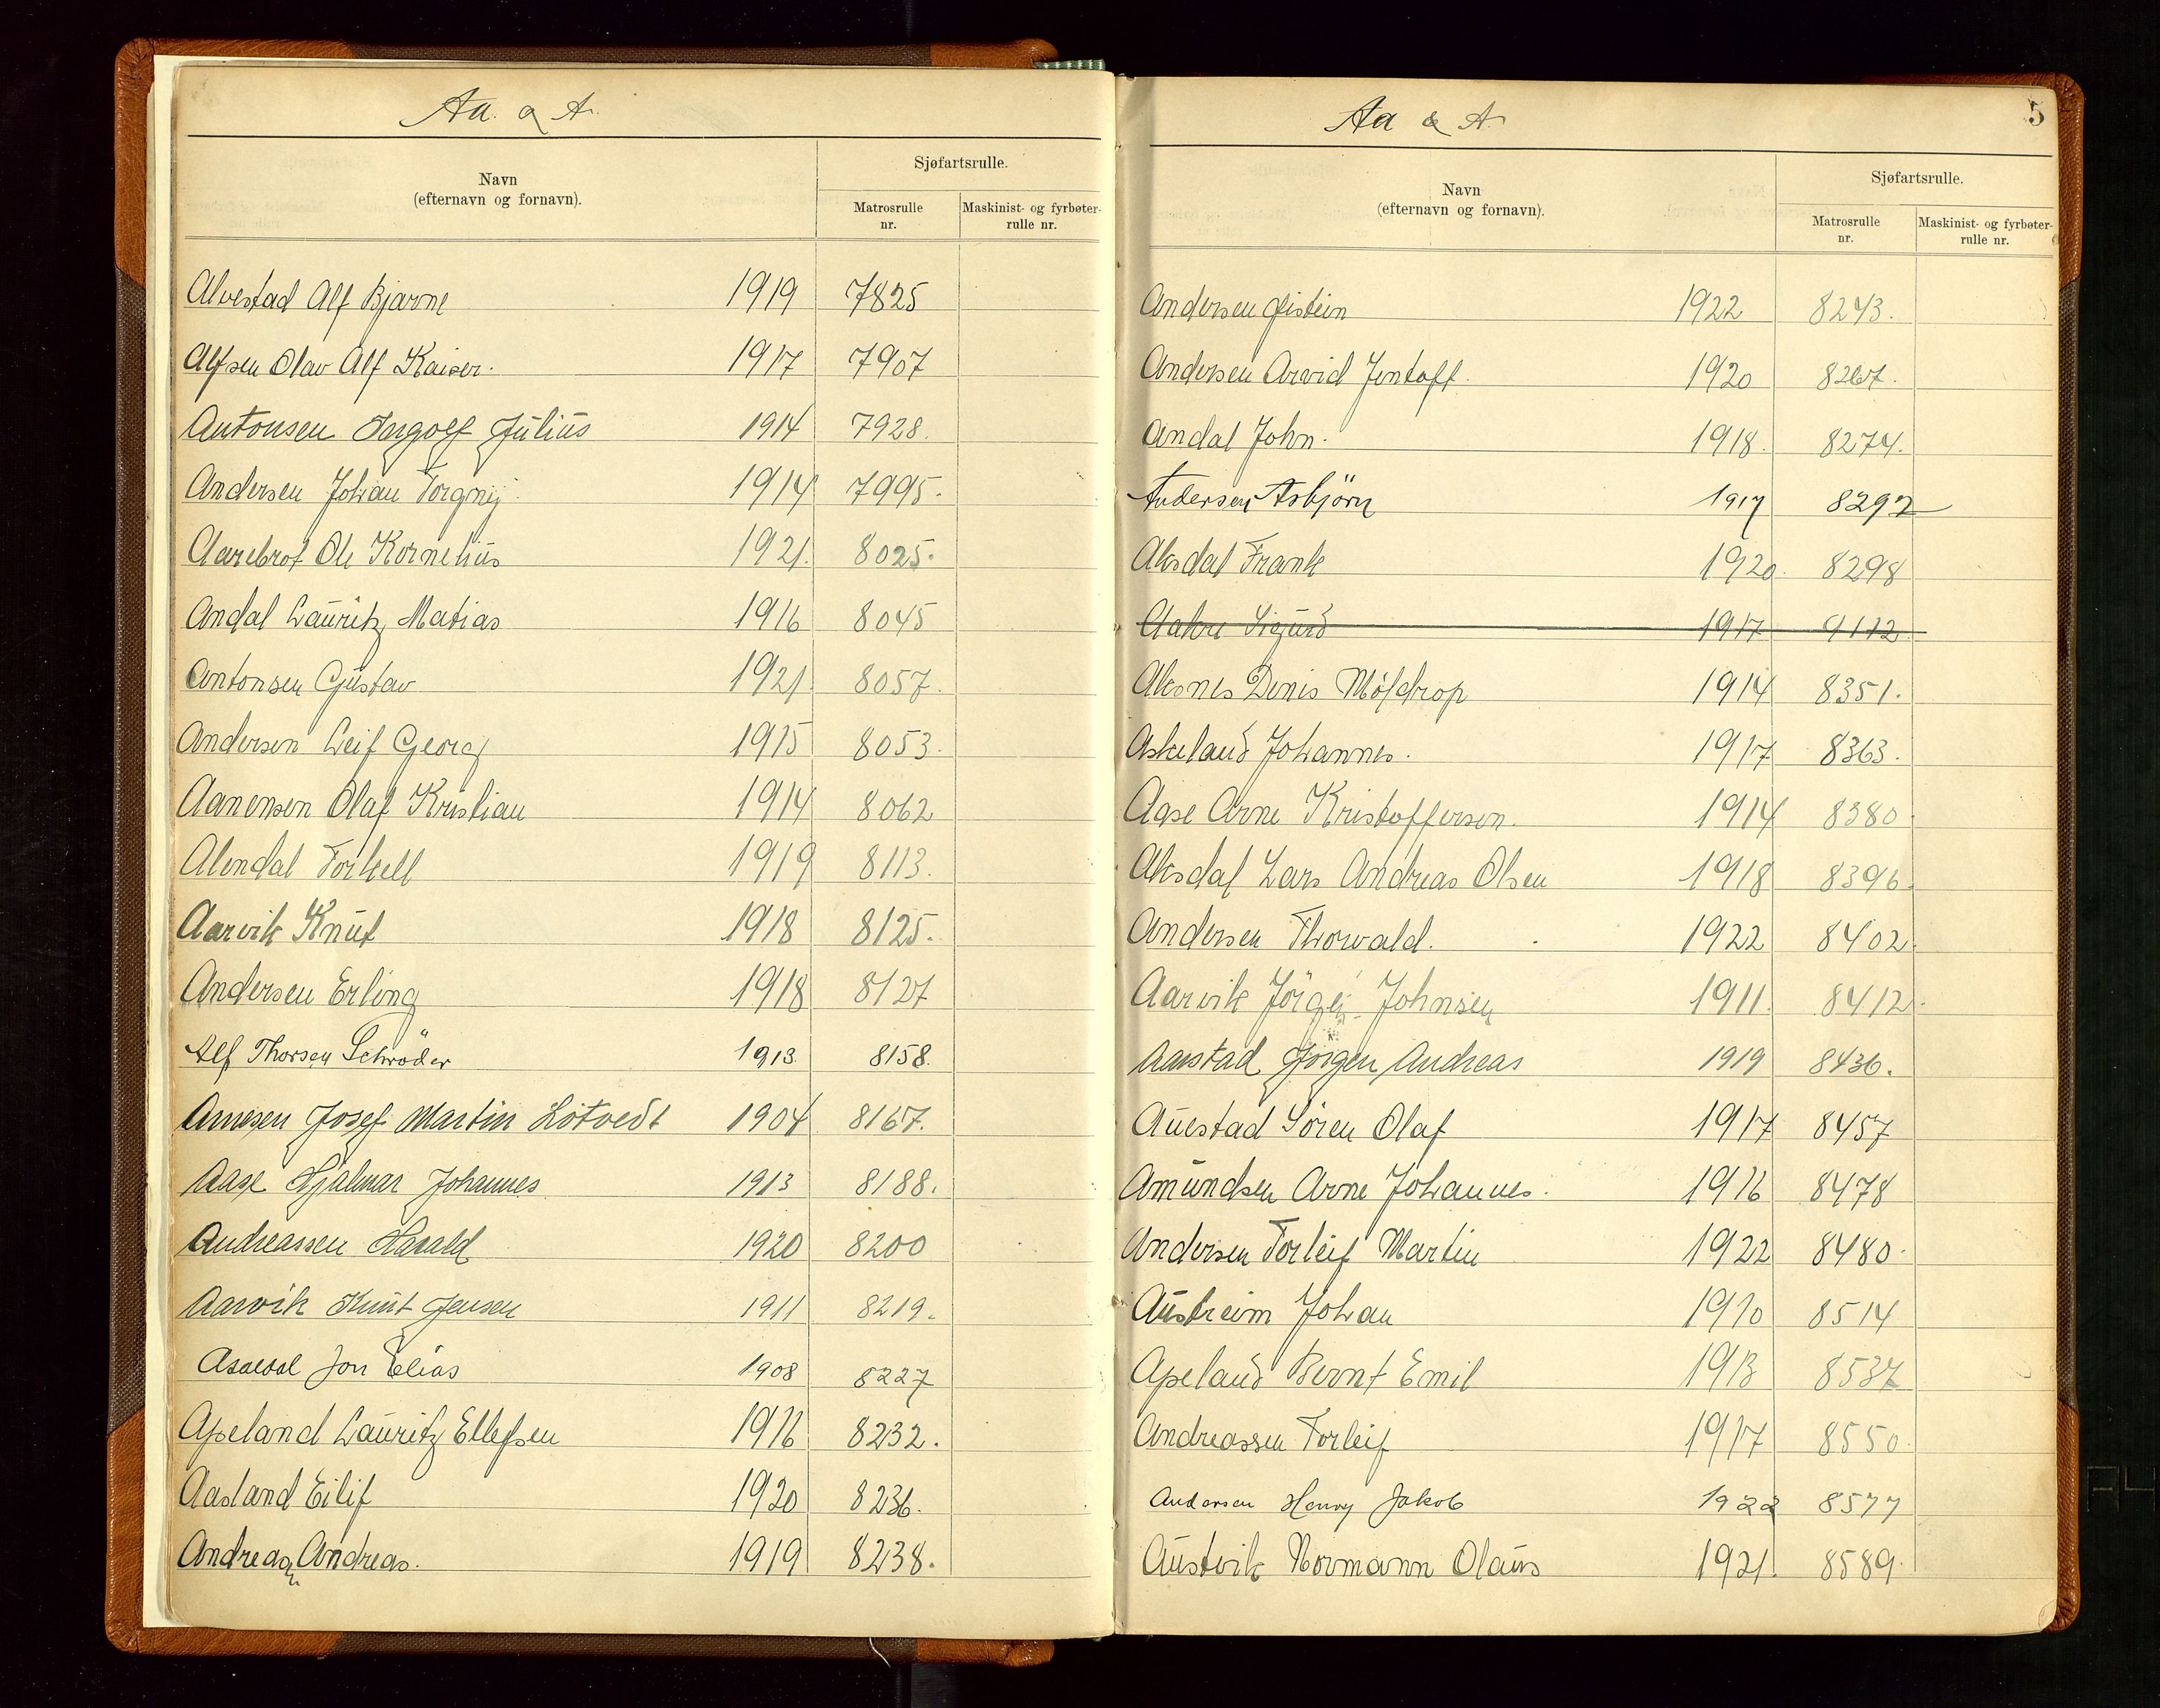 Aa. & A.
Sjøfartsrulle.
Navn
(efternavn og fornavn).
Matrosrulle
nr.
Maskinist- og fyrbøter-
rulle nr.
Alvestad Alf Bjarne 1919 7825
Alfsen Olav Alf Kaiser. 1917 7907
Antonsen Ingolf Julius 1914 7928.
Andersen Johan Torgny 1914 7995.
Aarebrot Ole Kornelius 1921. 8025.
Andal Lauritz Matias 1916 8045
Antonsen Gustav 1921. 8057.
Andersen Leif Georg 1915 8053.
Aanensen Olaf Kristian 1914 8062
Alendal Torkell 1919 8113.
Aarvik Knut 1918 8125.
Andersen Erling 1918 8127
Alf Thorsen Schröder 1913 8158.
Arnesen Josef Martin Lötvedt 1904 8167.
Aase Hjalmar Johannes 1913 8188.
Andreassen Harald 1920 8200
Aarvik Knut Jensen 1911 8219.
Jon Elias 1908 8227
Apeland Lauritz Ellefsen 1916 8232.
Aasland Eilif 1920 8236.
Andreasen Andreas. 1919 8238.
Aa & A.
5
Sjøfartsrulle.
Navn
(efternavn og fornavn).
Matrosrulle
nr.
Maskinist- og fyrbøter-
rulle nr.
Andersen Øistein 1922 8243.
Andersen Arvid Jentoft. 1920 8267.
Andal John. 1918. 8274.
Andersen Asbjörn 1917 8292
Aksdal Frank 1920. 8298
Aakre Sigurd 1917 9112
Aksnes Denis Møldrop 1914 8351.
Askeland Johannes. 1917 8363.
Aase Arne Kristoffersen. 1914 8380
Aksdal Lars Andreas Olsen 1918 8396.
Andersen Thorvald. 1922 8402.
Aarvik Johnsen 1911. 8412.
Aarstad Jørgen Andreas 1919 8436.
Auestad Sören Olaf 1917 8457
Amundsen Arne Johannes. 1916 8478
Andersen Torleif Martin 1922 8480.
Austreim Johan 1910 8514
Apeland Bernt Emil 1913 8537
Andreassen Torleif 1917 8550.
Andersen Henry Jakob 1922 8577
Austvik Normann Olaus 1921. 8589.